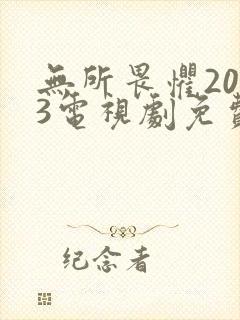 無所畏懼20
3電視劇免費
纪念者